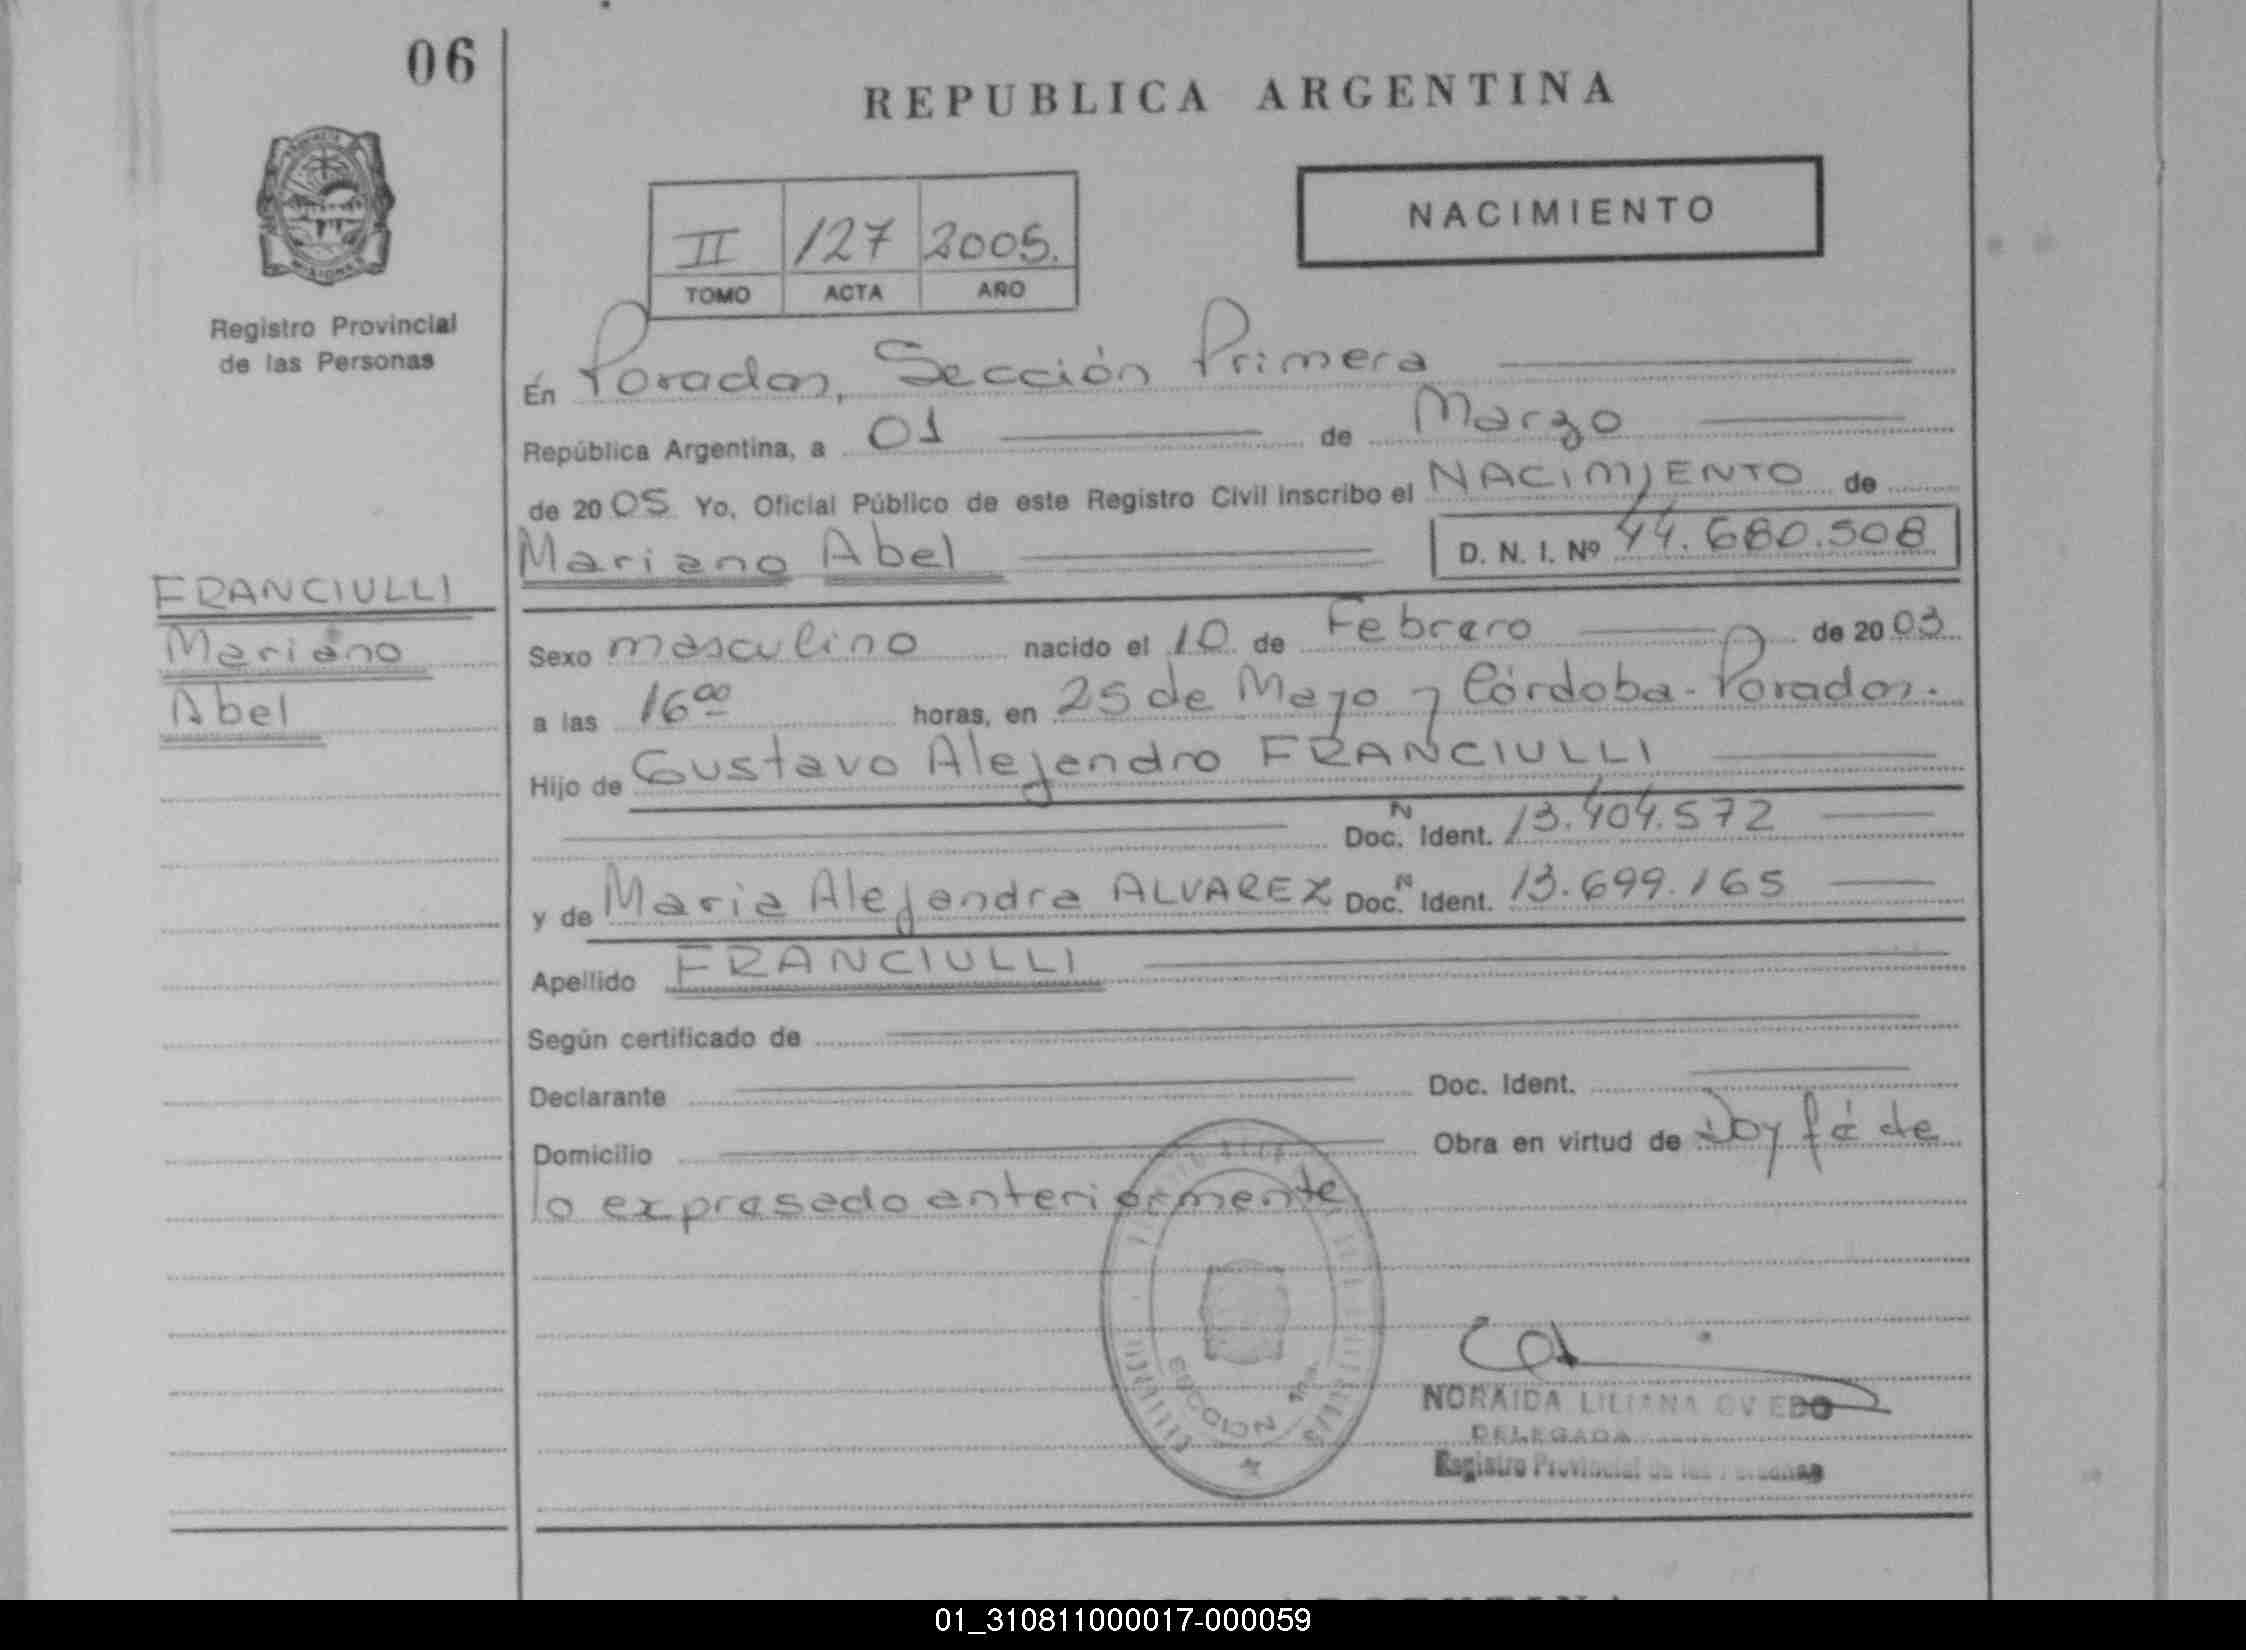 06
REPUBLICA ARGENTINA
NACIMIENTO
II 127 2005.
TOMO ACTA AÑO
Registro Provincial
de las Personas
En Posadas, Sección Primera
República Argentina, a 01 de Marzo
de 2005 Yo, Oficial Público de este Registro Civil inscribo el NACIMIENTO de
Mariano Abel D. N. I. Nº 44.680.508
FRANCIULLI
Mariano
Abel
Sexo masculino nacido el 10 de Febrero de 2003
a las 16 00 horas, en 25 de Mayo y Córdoba - Posadas.
Hijo de Gustavo Alejandro FRANCIULLI
Doc. N Ident. 13.404.572
y de Maria Alejandra ALVAREZ Doc. N Ident. 13.699.165
Apellido FRANCIULLI
Según certificado de
Declarante Doc. Ident.
Domicilio Obra en virtud de Doy fé de
lo expresado anteriormente
NORAIDA LILIANA OVIEDO
DELEGADA
Registro Provincial de las Personas
01_310811000017-000059